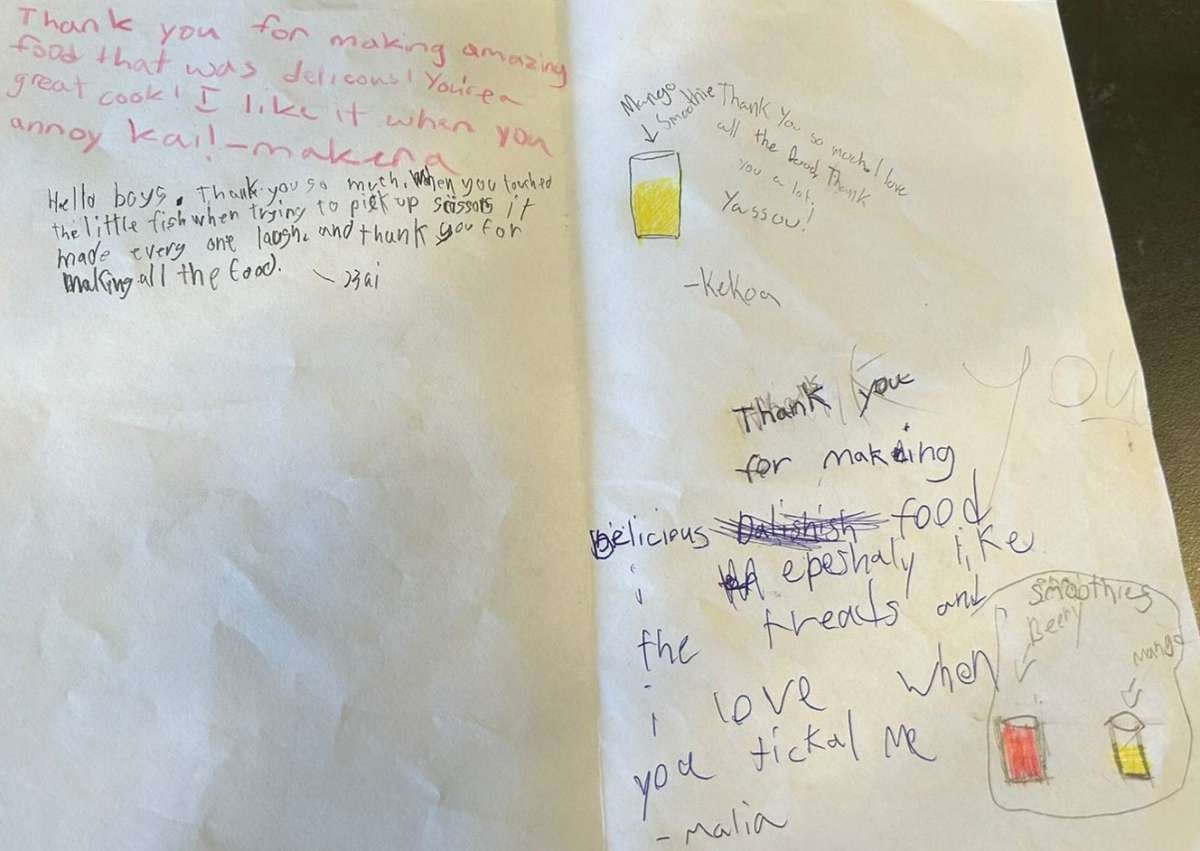 Thank you for making amazing
food that was delicous! You're a
great cook! I like it when you
annoy kai! -makena
Hello boys. Thank you so much. When you touched
the little fish when trying to pick up scissors it
made every one laugh, and thank you for
making all the food.
Mango
Smoothie
Thank You so much, I love
all the food, Thank
you a lot.
Yassou!
-Kekoa
YOU
Thank you
for making
Delicious food
i epeshaly like
the treats and
i love when
you tickal me
-malia
Smoothies
Beery
mango